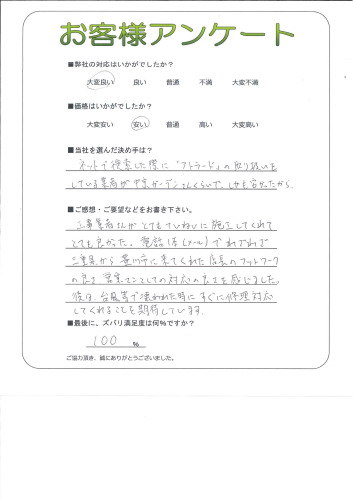 お客様アンケート
■弊社の対応はいかがでしたか？
大変良い 良い 普通 不満 大変不満
■価格はいかがですか？
大変安い 安い 普通 高い 大変高い
■当社を選んだ決め手は？
ネットで検索した際に「アトラード」の取り扱いを
している業者が ガーデンさんくらいで、しかも安かったから。
■ご感想・ご要望などをお書き下さい。
工事業者さんがとてもていねいに施工してくれて
とても良かった。電話は(メール)でわざわざ
三重県から 市に来てくれた店長のフットワーク
の良さ 営業マンとしての対応の良さを感じました。
後日、台風等で壊われた時にすぐに修理対応
してくれることを期待しています。
■最後に、ズバリ満足度は何%ですか？
100 %
ご協力頂き、誠にありがとうございました。